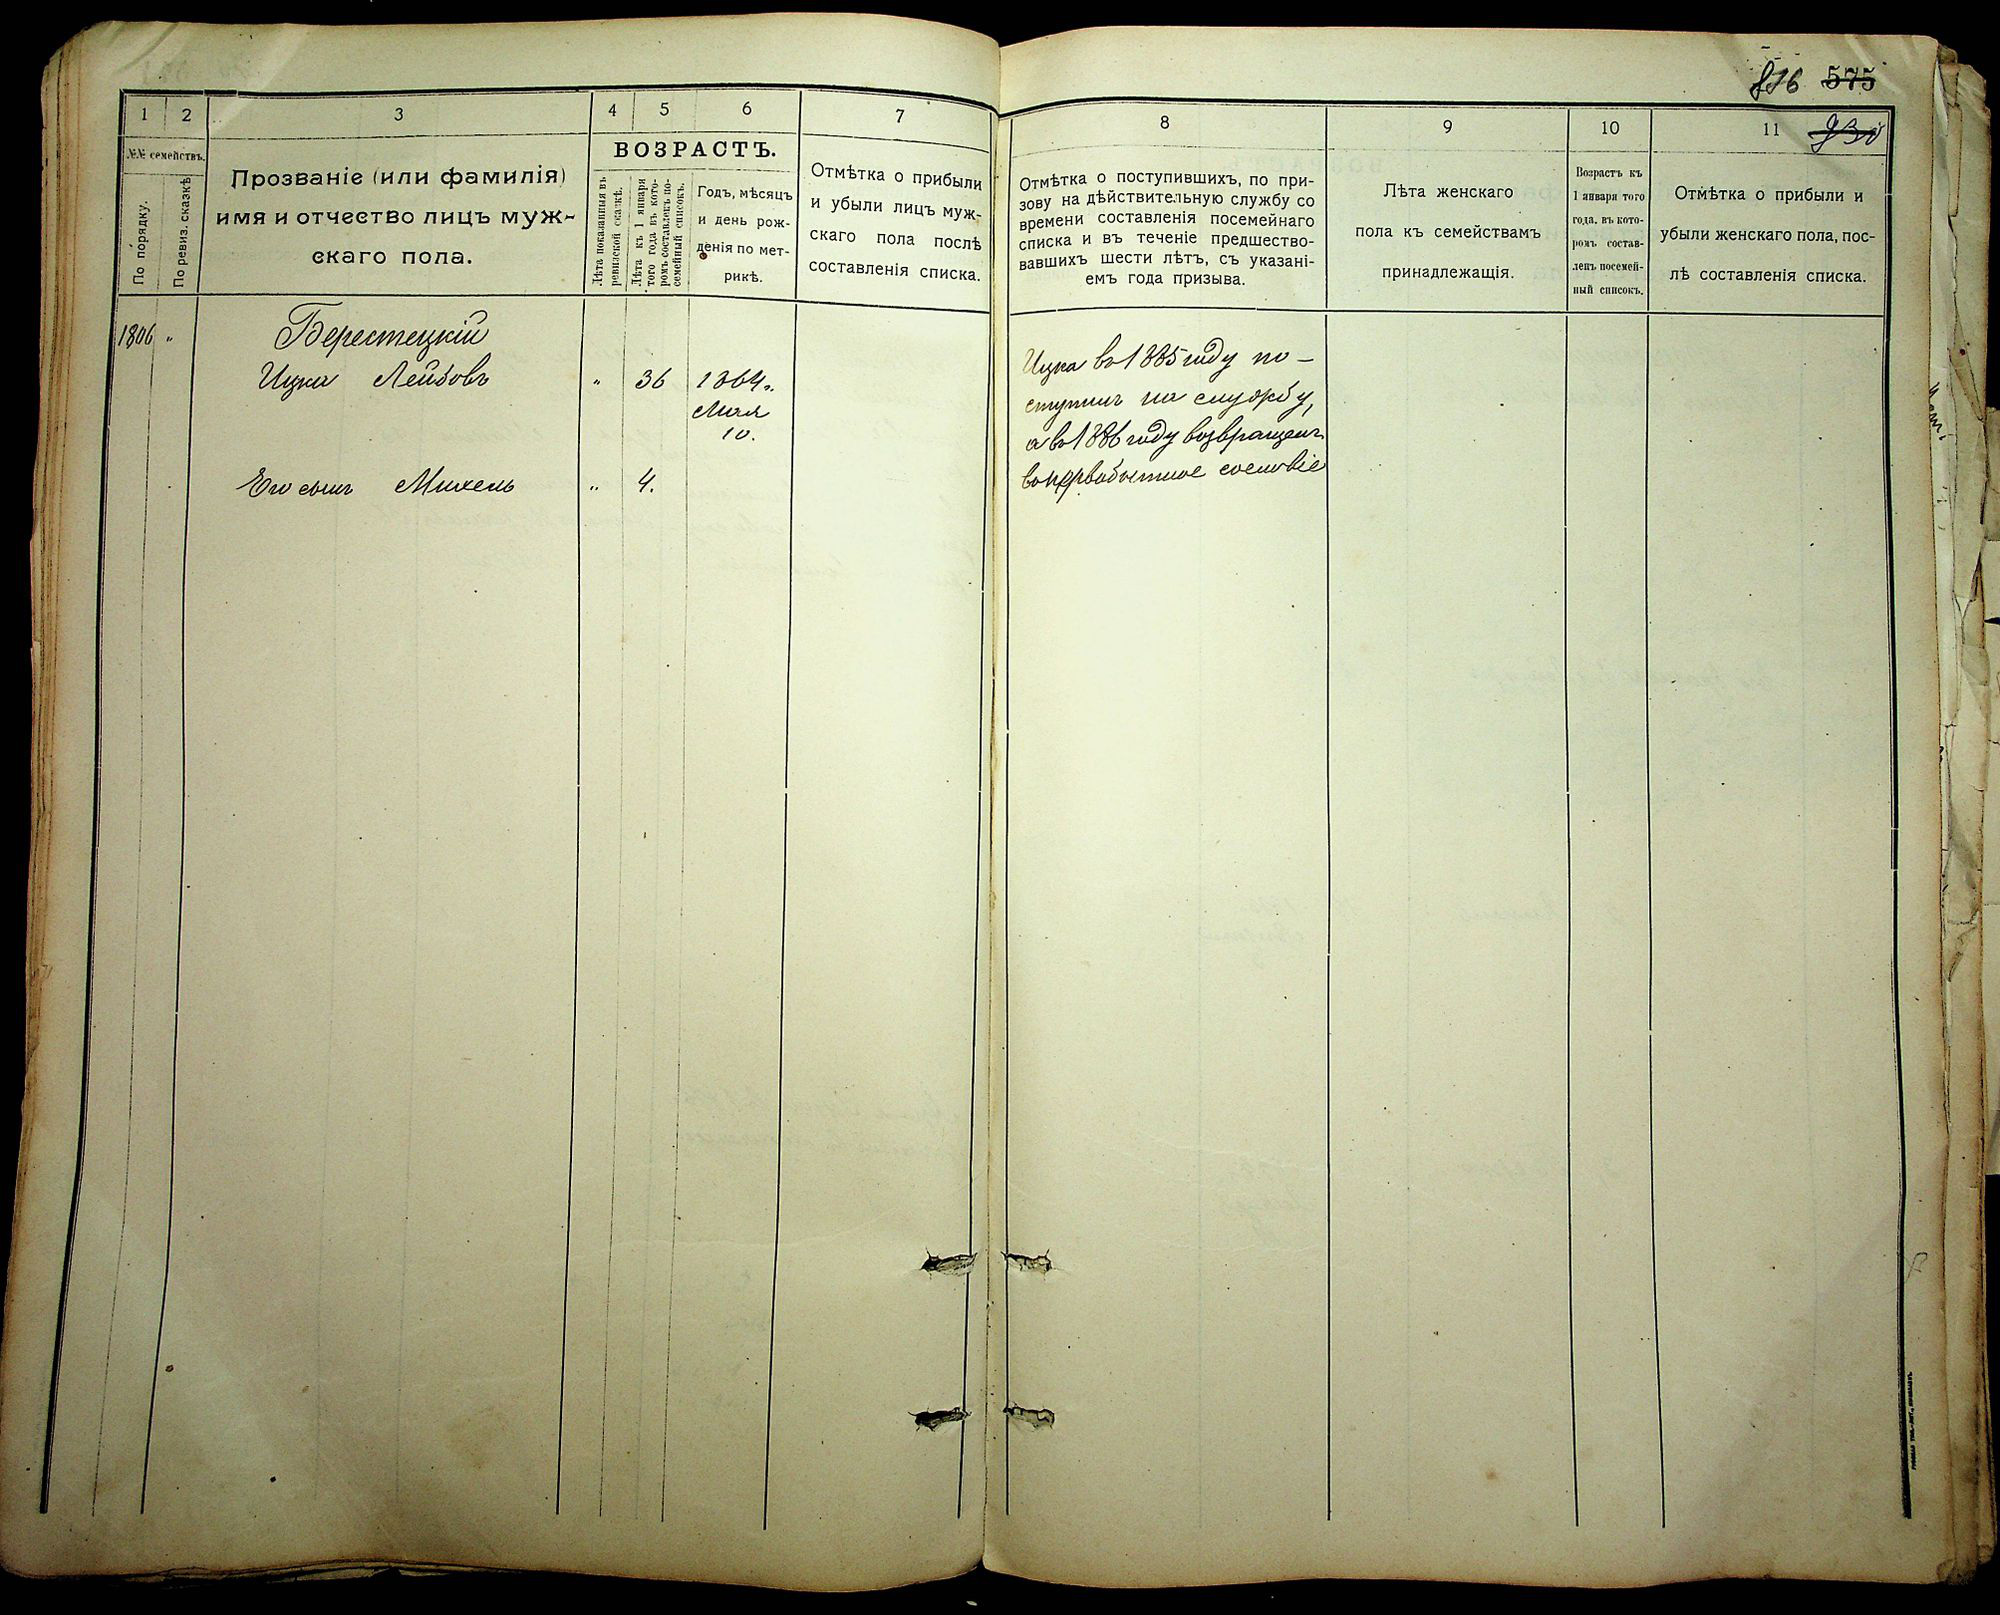 816 575
930
1
2
3
4
5
6
7
№№ семействъ.
По порядку.
По ревиз. сказкѣ
Прозваніе (или фамилія)
имя и отчество лицъ муж-
скаго пола.
ВОЗРАСТЪ.
Лѣта показанныя въ
ревизской сказкѣ.
Лѣта къ 1 января
того года въ кото-
ромъ составленъ по-
семейный списокъ.
Годъ, мѣсяцъ
и день рож-
денія по мет-
рикѣ.
Отмѣтка о прибыли
и убыли лицъ муж-
скаго пола послѣ
составленія списка.
8
9
10
11
Отмѣтка о поступившихъ, по при-
зову на дѣйствительную службу со
времени составленія посемейнаго
списка и въ теченіе предшество-
вавшихъ шести лѣтъ, съ указані-
емъ года призыва.
Лѣта женскаго
пола къ семействамъ
принадлежащія.
Возрастъ къ
1 января того
года, въ кото-
ромъ состав-
ленъ посемей-
ный списокъ.
Отмѣтка о прибыли и
убыли женскаго пола, пос-
лѣ составленія списка.
1806 "
Берестецкій
Ицка Лейбовъ " 36 1864.
Мая
10.
Его сынъ Михель " 4.
Ицка въ 1885 году по-
ступилъ на службу,
а въ 1886 году возвращенъ
въ первобытное сословіе